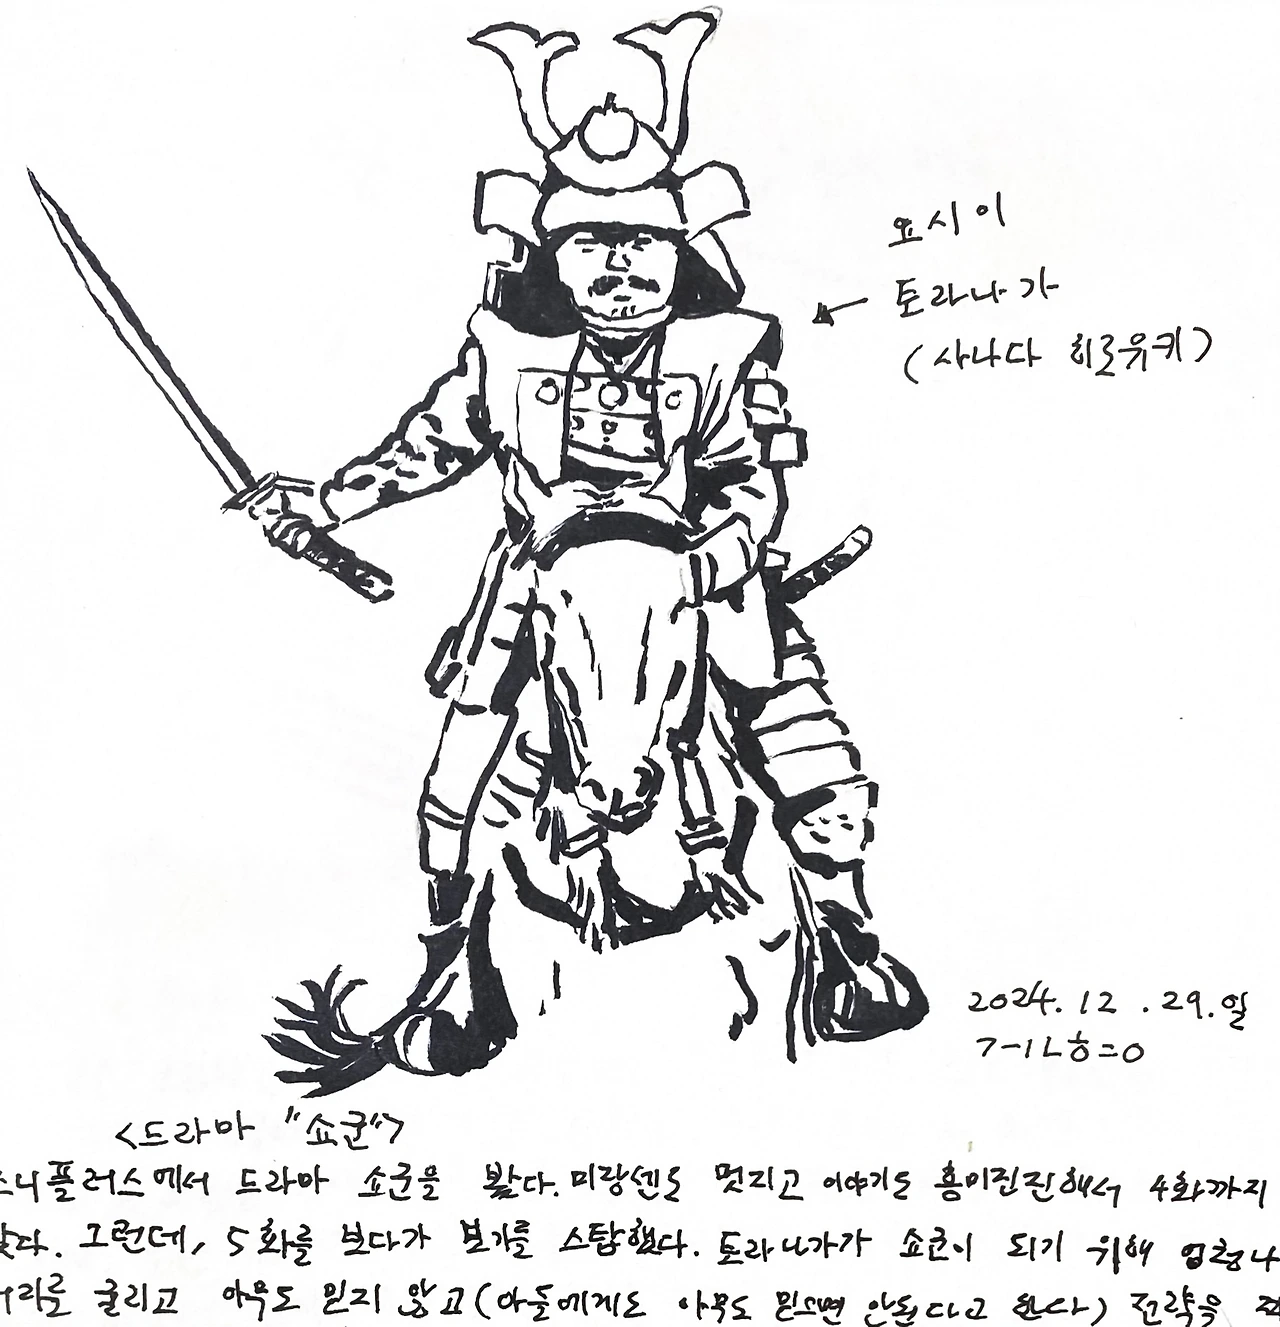 요시이
토라나가
(사나다 히로유키)
2024. 12. 29. 일
<드라마 "쇼군">
즈니플러스에서 드라마 쇼군을 봤다. 미장센도 멋지고 이야기도 흥미진진해서 4화까지
봤다. 그런데, 5화를 보다가 보기를 스탑했다. 토라나가가 쇼군이 되기 위해 엄청나
머리를 굴리고 아무도 믿지 않고(아들에게도 아무도 믿으면 안된다고 한다) 전략을